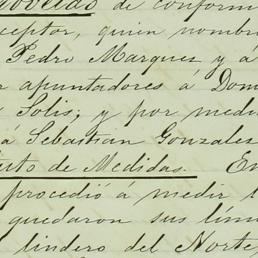 de conform
ceptor, quien nombr
Pedro Marquez y á
r apuntadores á Dom
Solis; y por medi
á Sebastián Gonzales
to de Medidas. En
procedió á medir l
quedaron sus lím
lindero del Norte,